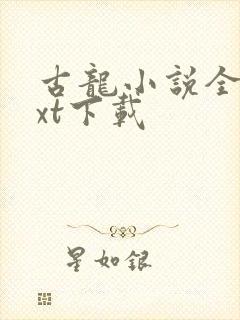 古龍小説全
xt下載
星如銀